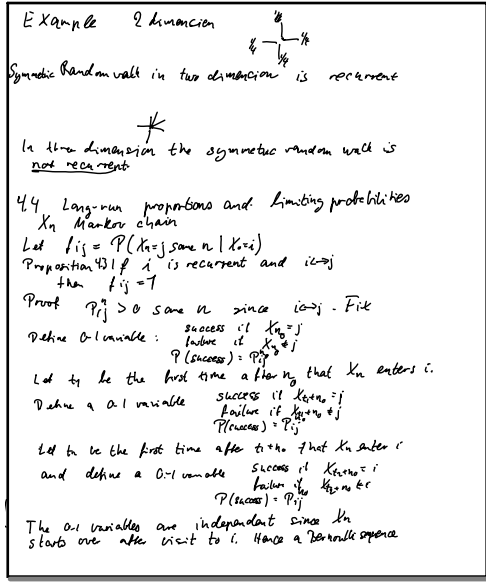 EXample 2 dimencien
1/4
1/4 1/4
1/4
Symmetric Random walk in two dimencien is recurrent
In three dimension the symmetric random walk is
not recurrent
4.4 Long-run proportions and limiting probebilities
Xn Markov chain
Let fij = P(Xn=j some n | X0=i)
Proposition 4.3 If i is recurrent and i↔j
then fij = 1
Proof Pij^n > 0 some n since i↔j. Fix
Define 0-1 variable: success if Xn0 = j
failure if Xn0 ≠ j
P(success) = Pij^n0
Let t1 be the first time after n0 that Xn enters i.
Define a 0-1 variable success if Xt1+n0 = j
failure if Xt1+n0 ≠ j
P(success) = Pij^n0
Let tn be the first time after t1+n0 that Xn enter i
and define a 0-1 variable success if Xt2+n0 = i
failure if Xt2+n0 ≠ i
P(success) = Pij^n0
The 0-1 variables are independent since Xn
starts over after visit to i. Hence a Bernoulli sequence